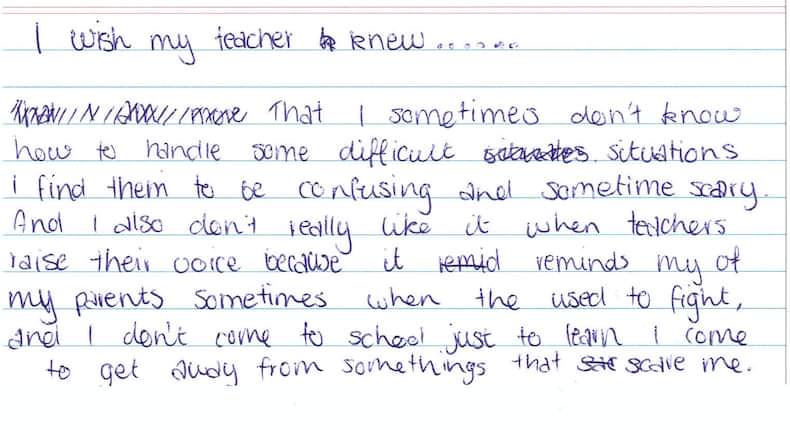 I wish my teacher knew.......
That I sometimes don't know
how to handle some difficult situations
i find them to be confusing and sometime scary.
And I also don't really like it when teachers
raise their voice because it remid reminds my of
my parents sometimes when the used to fight,
and I don't come to school just to learn I come
to get away from somethings that scare me.